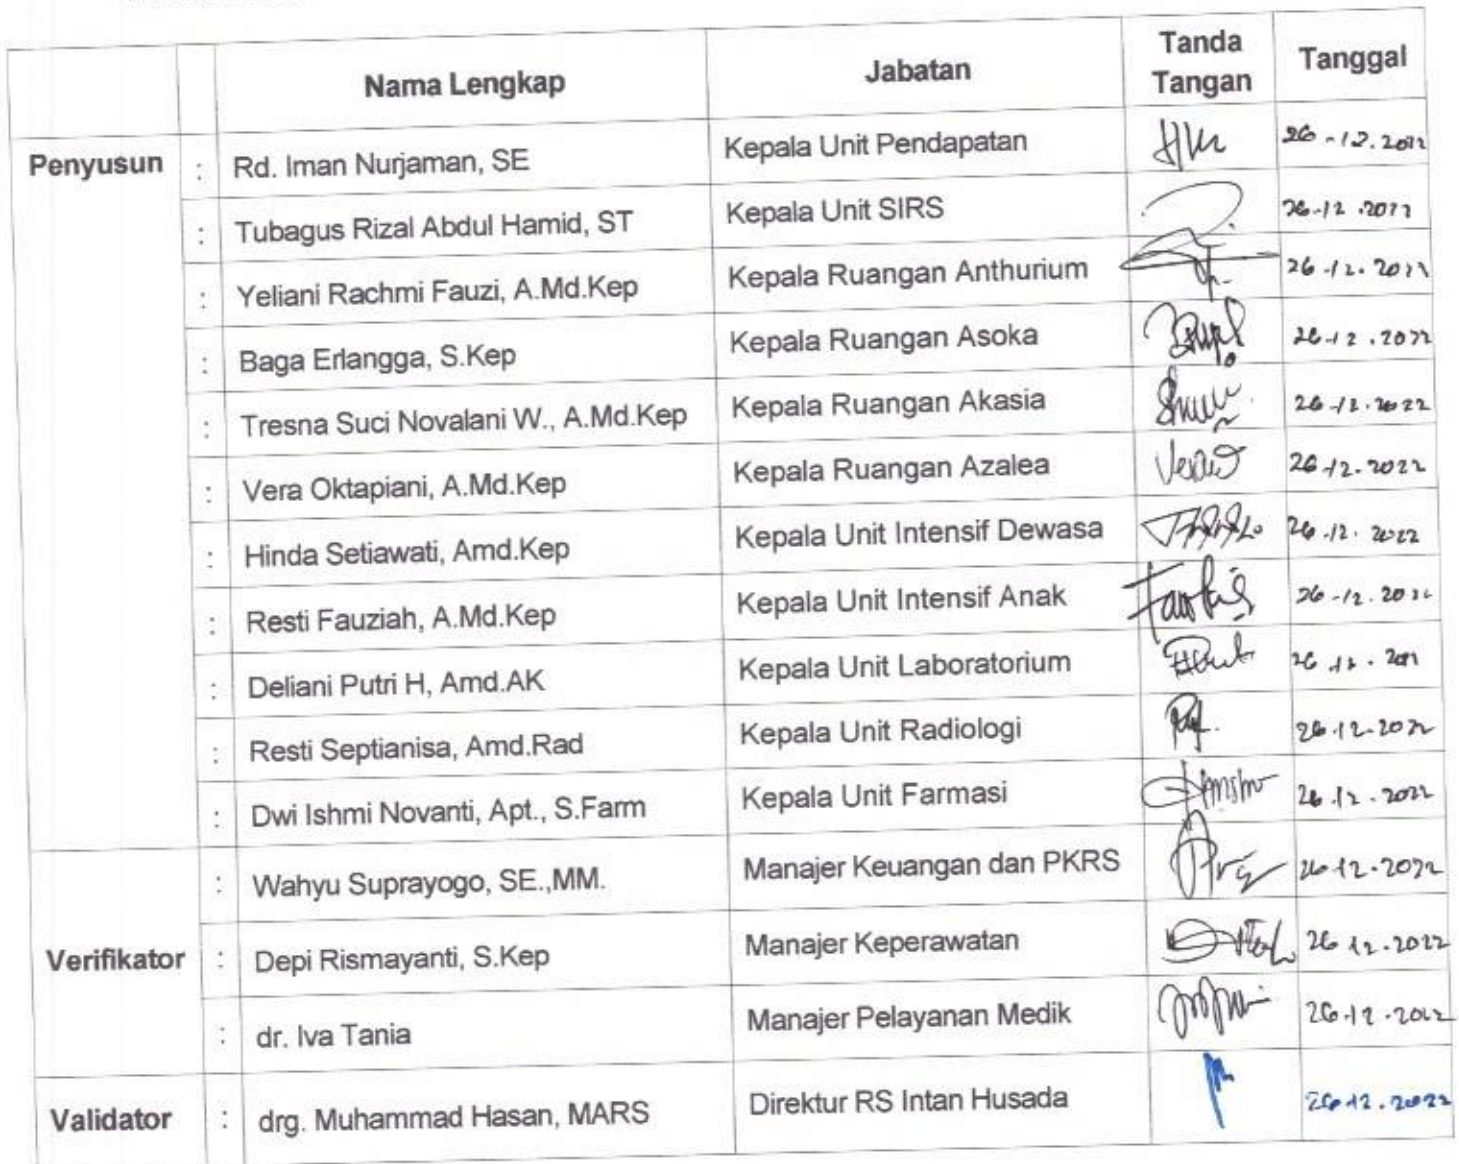 Nama Lengkap Jabatan Tanda Tangan Tanggal
Penyusun : Rd. Iman Nurjaman, SE Kepala Unit Pendapatan 26-12.2022
: Tubagus Rizal Abdul Hamid, ST Kepala Unit SIRS 26-12.2022
: Yeliani Rachmi Fauzi, A.Md.Kep Kepala Ruangan Anthurium 26-12.2022
: Baga Erlangga, S.Kep Kepala Ruangan Asoka 26-12.2022
: Tresna Suci Novalani W., A.Md.Kep Kepala Ruangan Akasia 26-12.2022
: Vera Oktapiani, A.Md.Kep Kepala Ruangan Azalea 26-12.2022
: Hinda Setiawati, Amd.Kep Kepala Unit Intensif Dewasa 26-12.2022
: Resti Fauziah, A.Md.Kep Kepala Unit Intensif Anak 26-12.2022
: Deliani Putri H, Amd.AK Kepala Unit Laboratorium
: Resti Septianisa, Amd.Rad Kepala Unit Radiologi 26-12-2022
: Dwi Ishmi Novanti, Apt., S.Farm Kepala Unit Farmasi 26-12.2022
: Wahyu Suprayogo, SE.,MM. Manajer Keuangan dan PKRS 26-12.2022
Verifikator : Depi Rismayanti, S.Kep Manajer Keperawatan 26 12.2022
: dr. Iva Tania Manajer Pelayanan Medik 26-12.2022
Validator : drg. Muhammad Hasan, MARS Direktur RS Intan Husada 26-12.2022